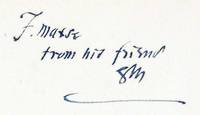 F. Matse
from his friend